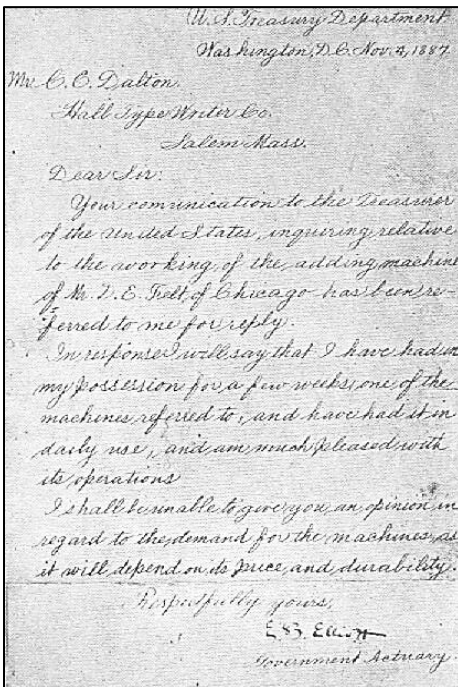 U. S. Treasury Department
Washington, D.C. Nov. 4, 1887
Mr. C. C. Dalton.
Hall Type Writer Co.
Salem Mass.
Dear Sir:
Your comunication to the Treasurer
of the United States, inquiring relative
to the working of the adding machine
of Mr. D. E. Felt, of Chicago has been re-
ferred to me for reply.
In response I will say that I have had in
my possession for a few weeks, one of the
machines referred to, and have had it in
daily use, and am much pleased with
its operations
I shall be unable to give you an opinion in
regard to the demand for the machines, as
it will depend on its price, and durability.
Respectfully yours,
E B. Elliott
Government Actuary.